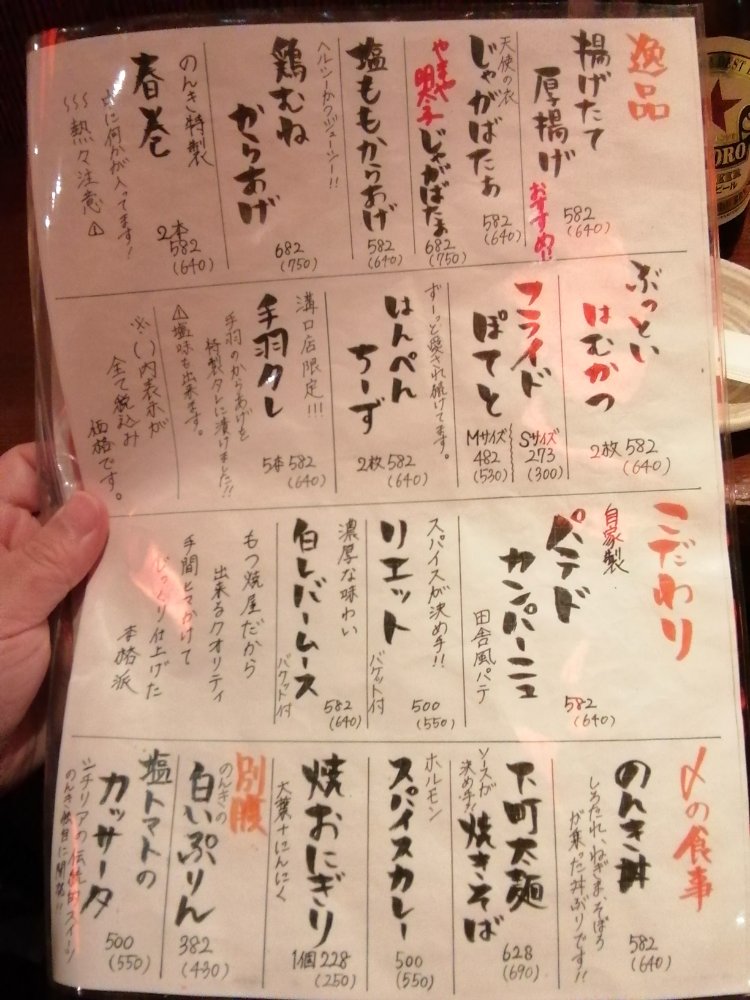 逸品
揚げたて
厚揚げ
おすすめ!!
582
(640)
天使の衣
じゃがばたぁ
582
(640)
やまや
明太子じゃがばたぁ
682
(750)
塩ももからあげ
582
(640)
ヘルシーかつジューシー!!
鶏むね
からあげ
682
(750)
のんき特製
春巻
2本
582
(640)
中に何かが入ってます!
熱々注意
ぶっとい
はむかつ
2枚 582
(640)
フライド
ぽてと
Sサイズ
273
(300)
Mサイズ
482
(530)
ずーっと愛され続けてます。
はんぺん
ちーず
2枚 582
(640)
溝口店限定!!!
手羽タレ
5本 582
(640)
手羽のからあげを
特製タレに漬けました!!
塩味も出来ます。
※( )内表示が
全て税込み
価格です。
こだわり
自家製
パテド
カンパーニュ
田舎風パテ
582
(640)
スパイスが決め手!!
リエット
バケット付
500
(550)
濃厚な味わい
白レバームース
バケット付
582
(640)
もつ焼屋だから
出来るクオリティ
手間ヒマかけて
じっくり仕上げた
本格派
〆の食事
のんき丼
しろたれ、ねぎま、そぼろ
が乗った丼ぶりです!!
582
(640)
下町太麺
焼きそば
ソースが
決め手!!
628
(690)
ホルモン
スパイスカレー
500
(550)
焼おにぎり
大葉+にんにく
1個 228
(250)
別腹
のんきの
白いぷりん
382
(430)
塩トマトの
カッサータ
シチリアの伝統的スイーツ
500
(550)